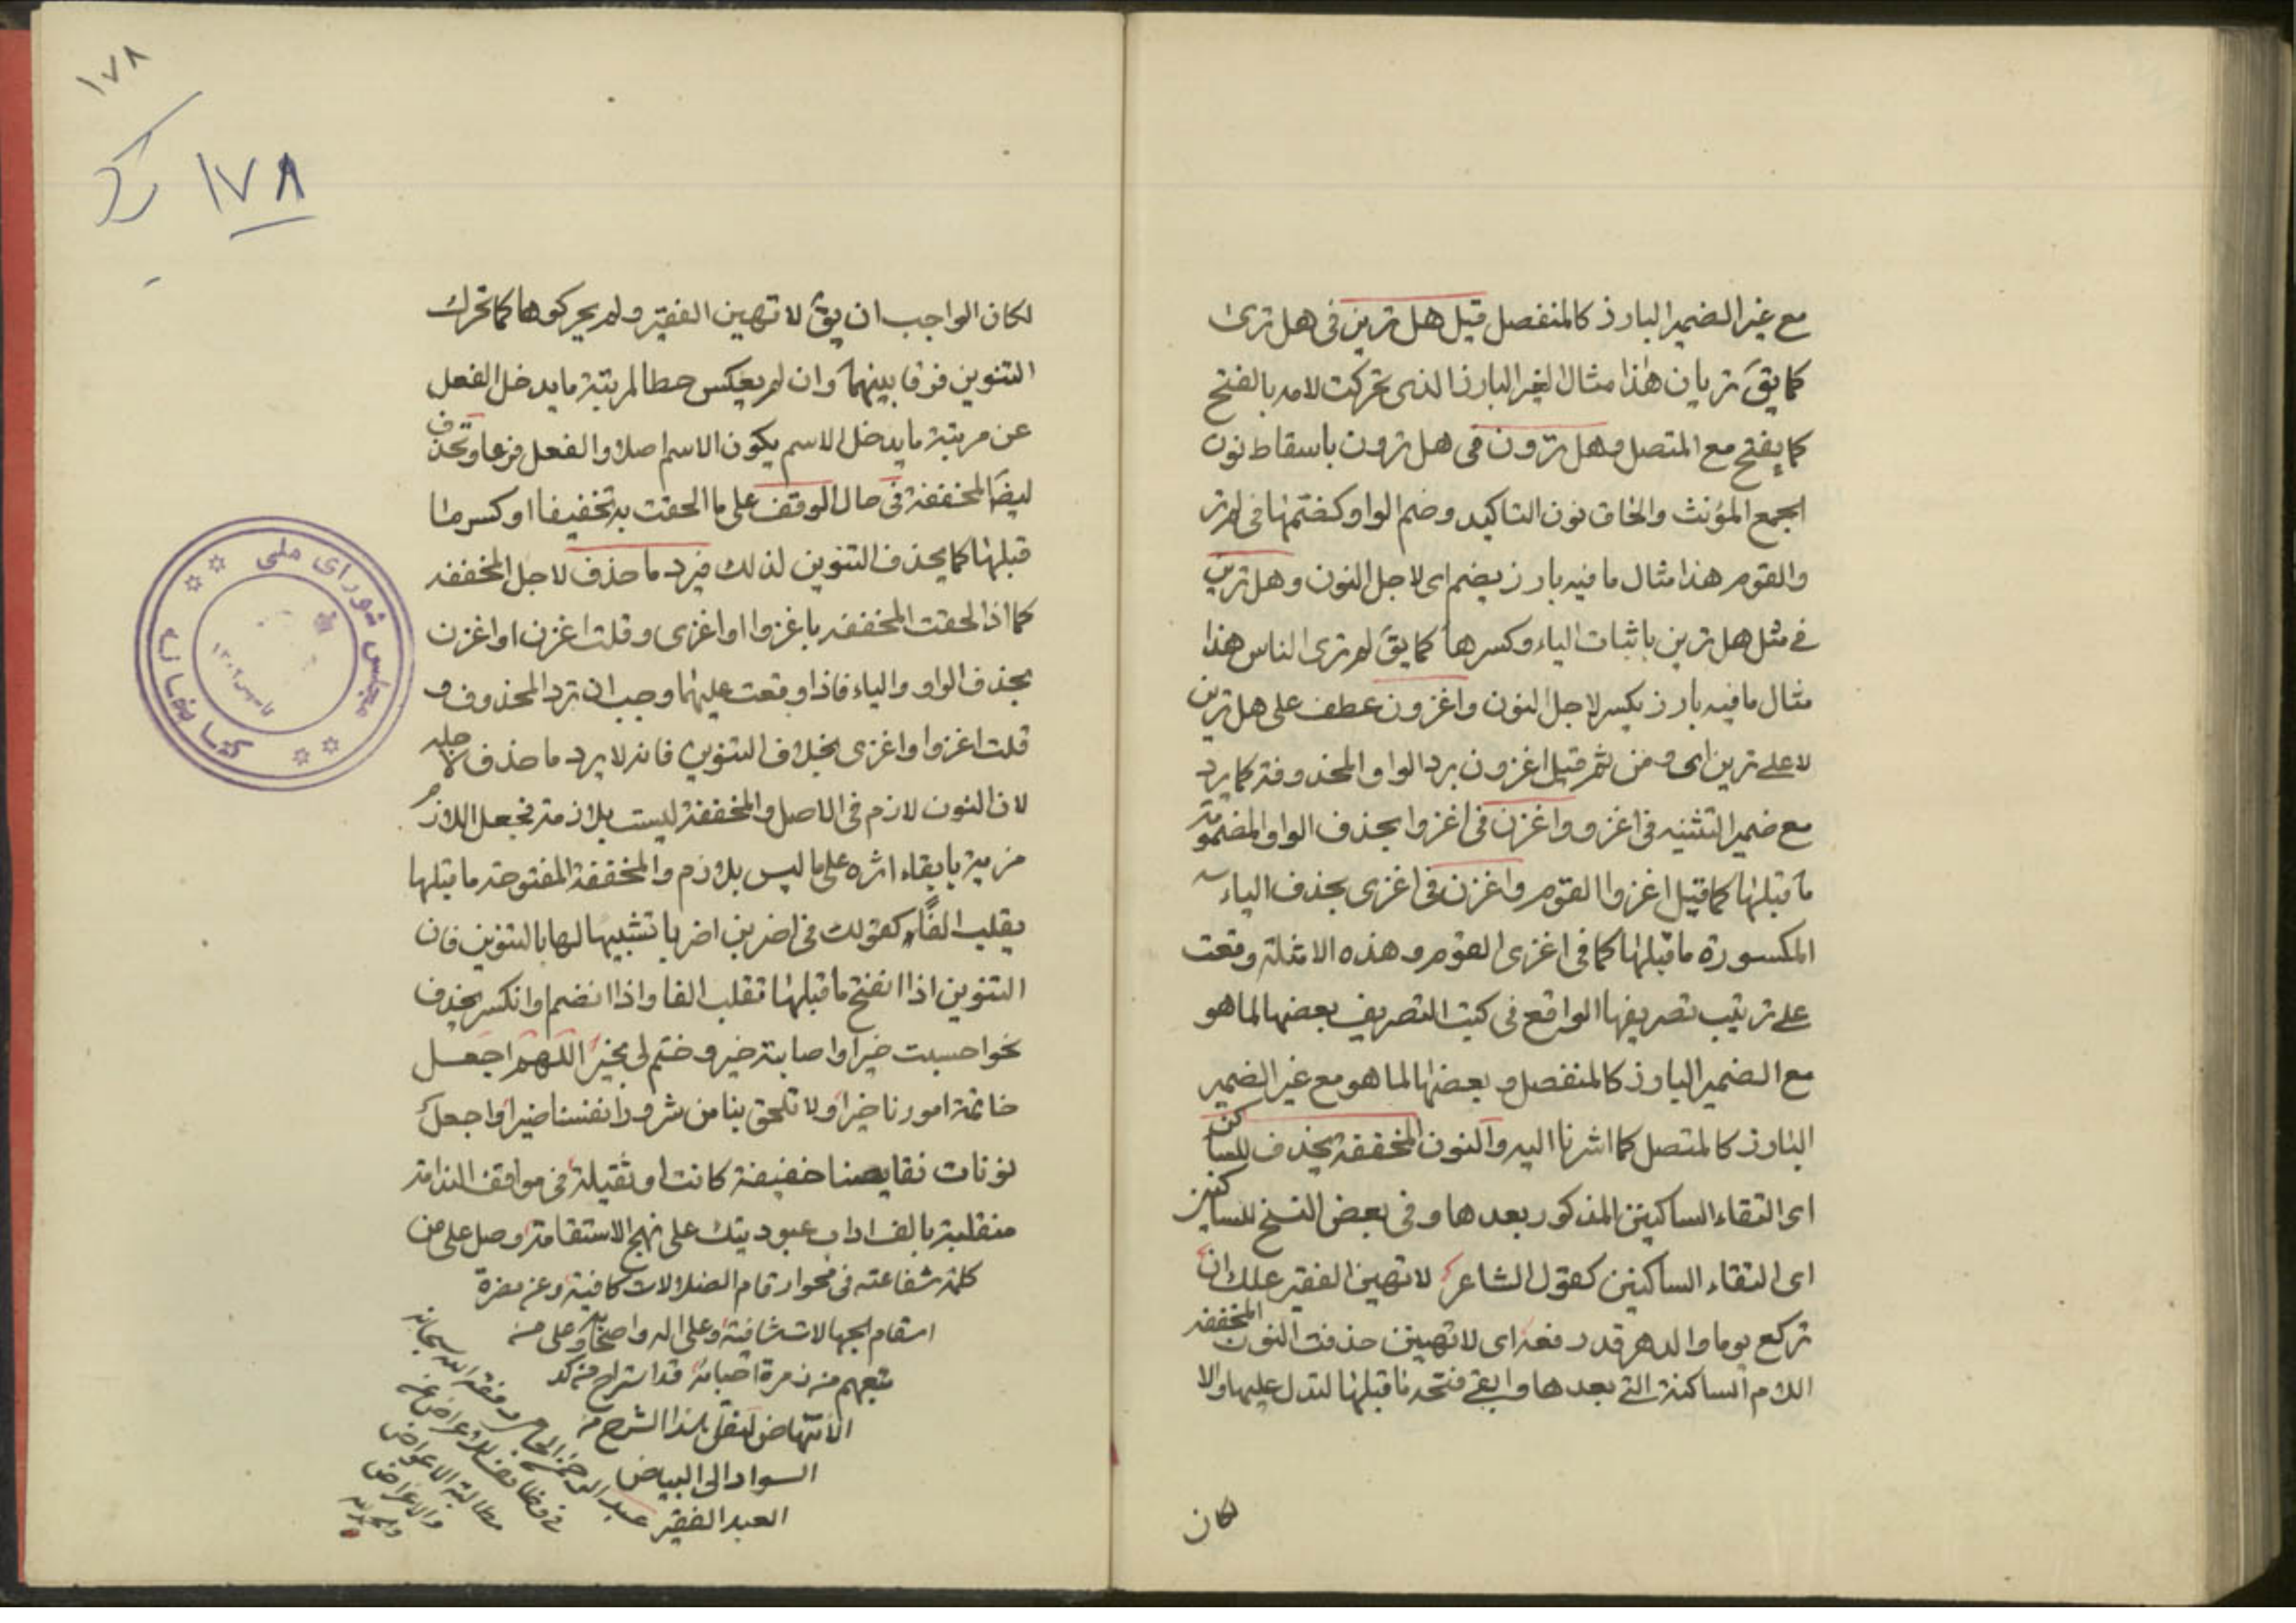 مع غير الضمير البارز كالمنفصل قيل هل ترين فى هل ترى
كما يقَ تريان هذا مثال لغير البارز الذى تحركت لامه بالفتح
كما يفتح مع المتصل وهل ترون فى هل ترون باسقاط نون
الجمع المؤنث والحاق نون التاكيد وضم الواو كضمتها فى لم تر
والقوم هذا مثال ما فيه بارز يضم اى لاجل النون وهل ترين
فے مثل هل ترين باثبات الياء وكسرها كما يقَ لم ترى الناس هذا
مثال ما فيه بارز يكسر لاجل النون واغزون عطف على هل ترين
لا علے ترين اى ومن ثم قيل اغزون برد الواو المحذوفة كما يرد
مع ضمير التثنيه فى اغزو واغزن فى اغزوا بحذف الواو المضمومة
ما قبلها كما قيل اغزوا القوم واغزن فى اغزى بحذف الياء
المكسورة ما قبلها كما فى اغزى القوم وهذه الامثلة وقعت
علے ترتيب تصريفها الواقع فى كتب التصريف بعضها لما هو
مع الضمير البارز كالمنفصل وبعضها لما هو مع غير الضمير
البارز كالمتصل كما اشرنا اليه والنون المخففة يحذف للساكن
اى التقاء الساكنين المذكور بعدها وفى بعض النسخ للساكنين
اى التقاء الساكنين كقول الشاعر لا تهين الفقير علك ان
تركع يوما والدهر قد رفعه اى لا تهينن حذفت النون المخففه
اللام الساكنة التے بعدها وابقے فتحه ما قبلها لتدل عليها والا
لكان
١٧٨
١٧٨
لكان الواجب ان يقَ لا تهين الفقير ولم يحركوها كما تحرك
التنوين فرقا بينهما وان لم يعكس حطا لمرتبة ما يدخل الفعل
عن مرتبة ما يدخل الاسم يكون الاسم اصلا والفعل فرعا وتحذف
ايضا المخففة فى حال الوقف على ما الحقت به تخفيفا او كسر ما
قبلها كما يحذف التنوين لذلك فيرد ما حذف لاجل المخففه
كما اذا لحقت المخففه باغزوا او اغزى وقلت اغزن او اغزن
بحذف الواو والياء فاذا وقعت عليهما وجب ان ترد المحذوف و
قلت اغزوا واغزى بخلاف التنوين فانه لا يرد ما حذف لاجله
لان النون لازم فى الاصل والمخففة ليست بلازمة فجعل اللازم
مزية بابقاء اثره على ما ليس بلازم والمخففة المفتوحة ما قبلها
يقلب الفا كقولك فى اضربن اضربا تشبيها لها بالتنوين فان
التنوين اذا انفتح ما قبلها تقلب الفا واذا انضم او انكسر يحذف
نحو احسبت خيرا واصابته خير وختم لى بخير اللهم اجعل
خاتمة امورنا خيرا ولا تلحق بنا من شرور انفسنا ضيرا واجعل
نونات نقايصنا خفيفة كانت او ثقيلة فى مواقف الندامة
منقلبة بالف اداب عبوديتك على نهج الاستقامة وصل على من
كلمة شفاعته فى محو ارقام الضلالات كافية وعن مضرة
اسقام الجهالات شافية وعلى اله واصحابه وعلى من
يتبعهم من زمرة احبابه قد استراح من كد
الانتهاض لنقل هذا الشرح من
السواد الى البياض
العبد الفقير عبد الرحمن الجامى وفقه الله سبحانه
فى وظايف للاعراض عن
مطالبة الاعواض
والاغراض
والحمد لله
مجلس شوراى ملى
كتابخانه